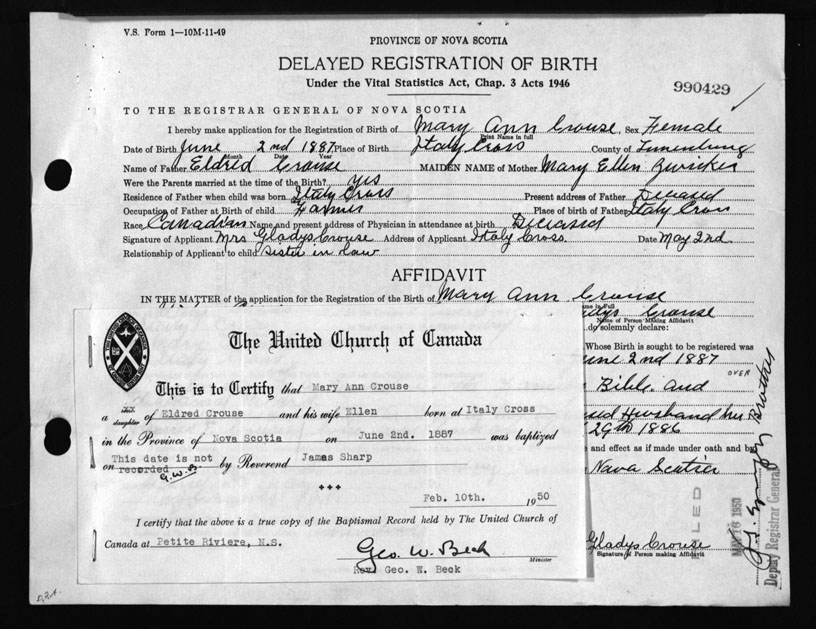 V.S. Form 1—10M-11-49
PROVINCE OF NOVA SCOTIA
DELAYED REGISTRATION OF BIRTH
Under the Vital Statistics Act, Chap. 3 Acts 1946
990429
TO THE REGISTRAR GENERAL OF NOVA SCOTIA
I hereby make application for the Registration of Birth of Mary Ann Crouse, Sex Female
Print Name in full
Date of Birth June 2nd 1887 Place of Birth Italy Cross County of Lunenburg
Month Date Year
Name of Father Eldred Crouse MAIDEN NAME of Mother Mary Ellen Zwicker
Were the Parents married at the time of the Birth? yes
Residence of Father when child was born Italy Cross Present address of Father Deceased
Occupation of Father at Birth of child Farmer Place of birth of Father Italy Cross
Race Canadian Name and present address of Physician in attendance at birth Deceased
Signature of Applicant Mrs Gladys Crouse Address of Applicant Italy Cross. Date May 2nd
Relationship of Applicant to child Sister in law
AFFIDAVIT
IN THE MATTER of the application for the Registration of the Birth of Mary Ann Crouse
in full
adys Crouse
Name of Person Making Affidavit
do solemnly declare:
Whose Birth is sought to be registered was
une 2nd 1887
OVER
Bible and
Husband
29th 1886
and effect as if made under oath and by
Nova Scotia
LED
MAY 16 1950
Deputy Registrar General
Gladys Crouse
Signature of Person making Affidavit
The United Church of Canada
This is to Certify that Mary Ann Crouse
a daughter of Eldred Crouse and his wife Ellen born at Italy Cross
in the Province of Nova Scotia on June 2nd. 1887 was baptized
on This date is not recorded G.W.B. by Reverend James Sharp
+++
Feb. 10th. 1950
I certify that the above is a true copy of the Baptismal Record held by The United Church of
Canada at Petite Riviere, N.S.
Geo. W. Beck
Minister
Rev. Geo. W. Beck